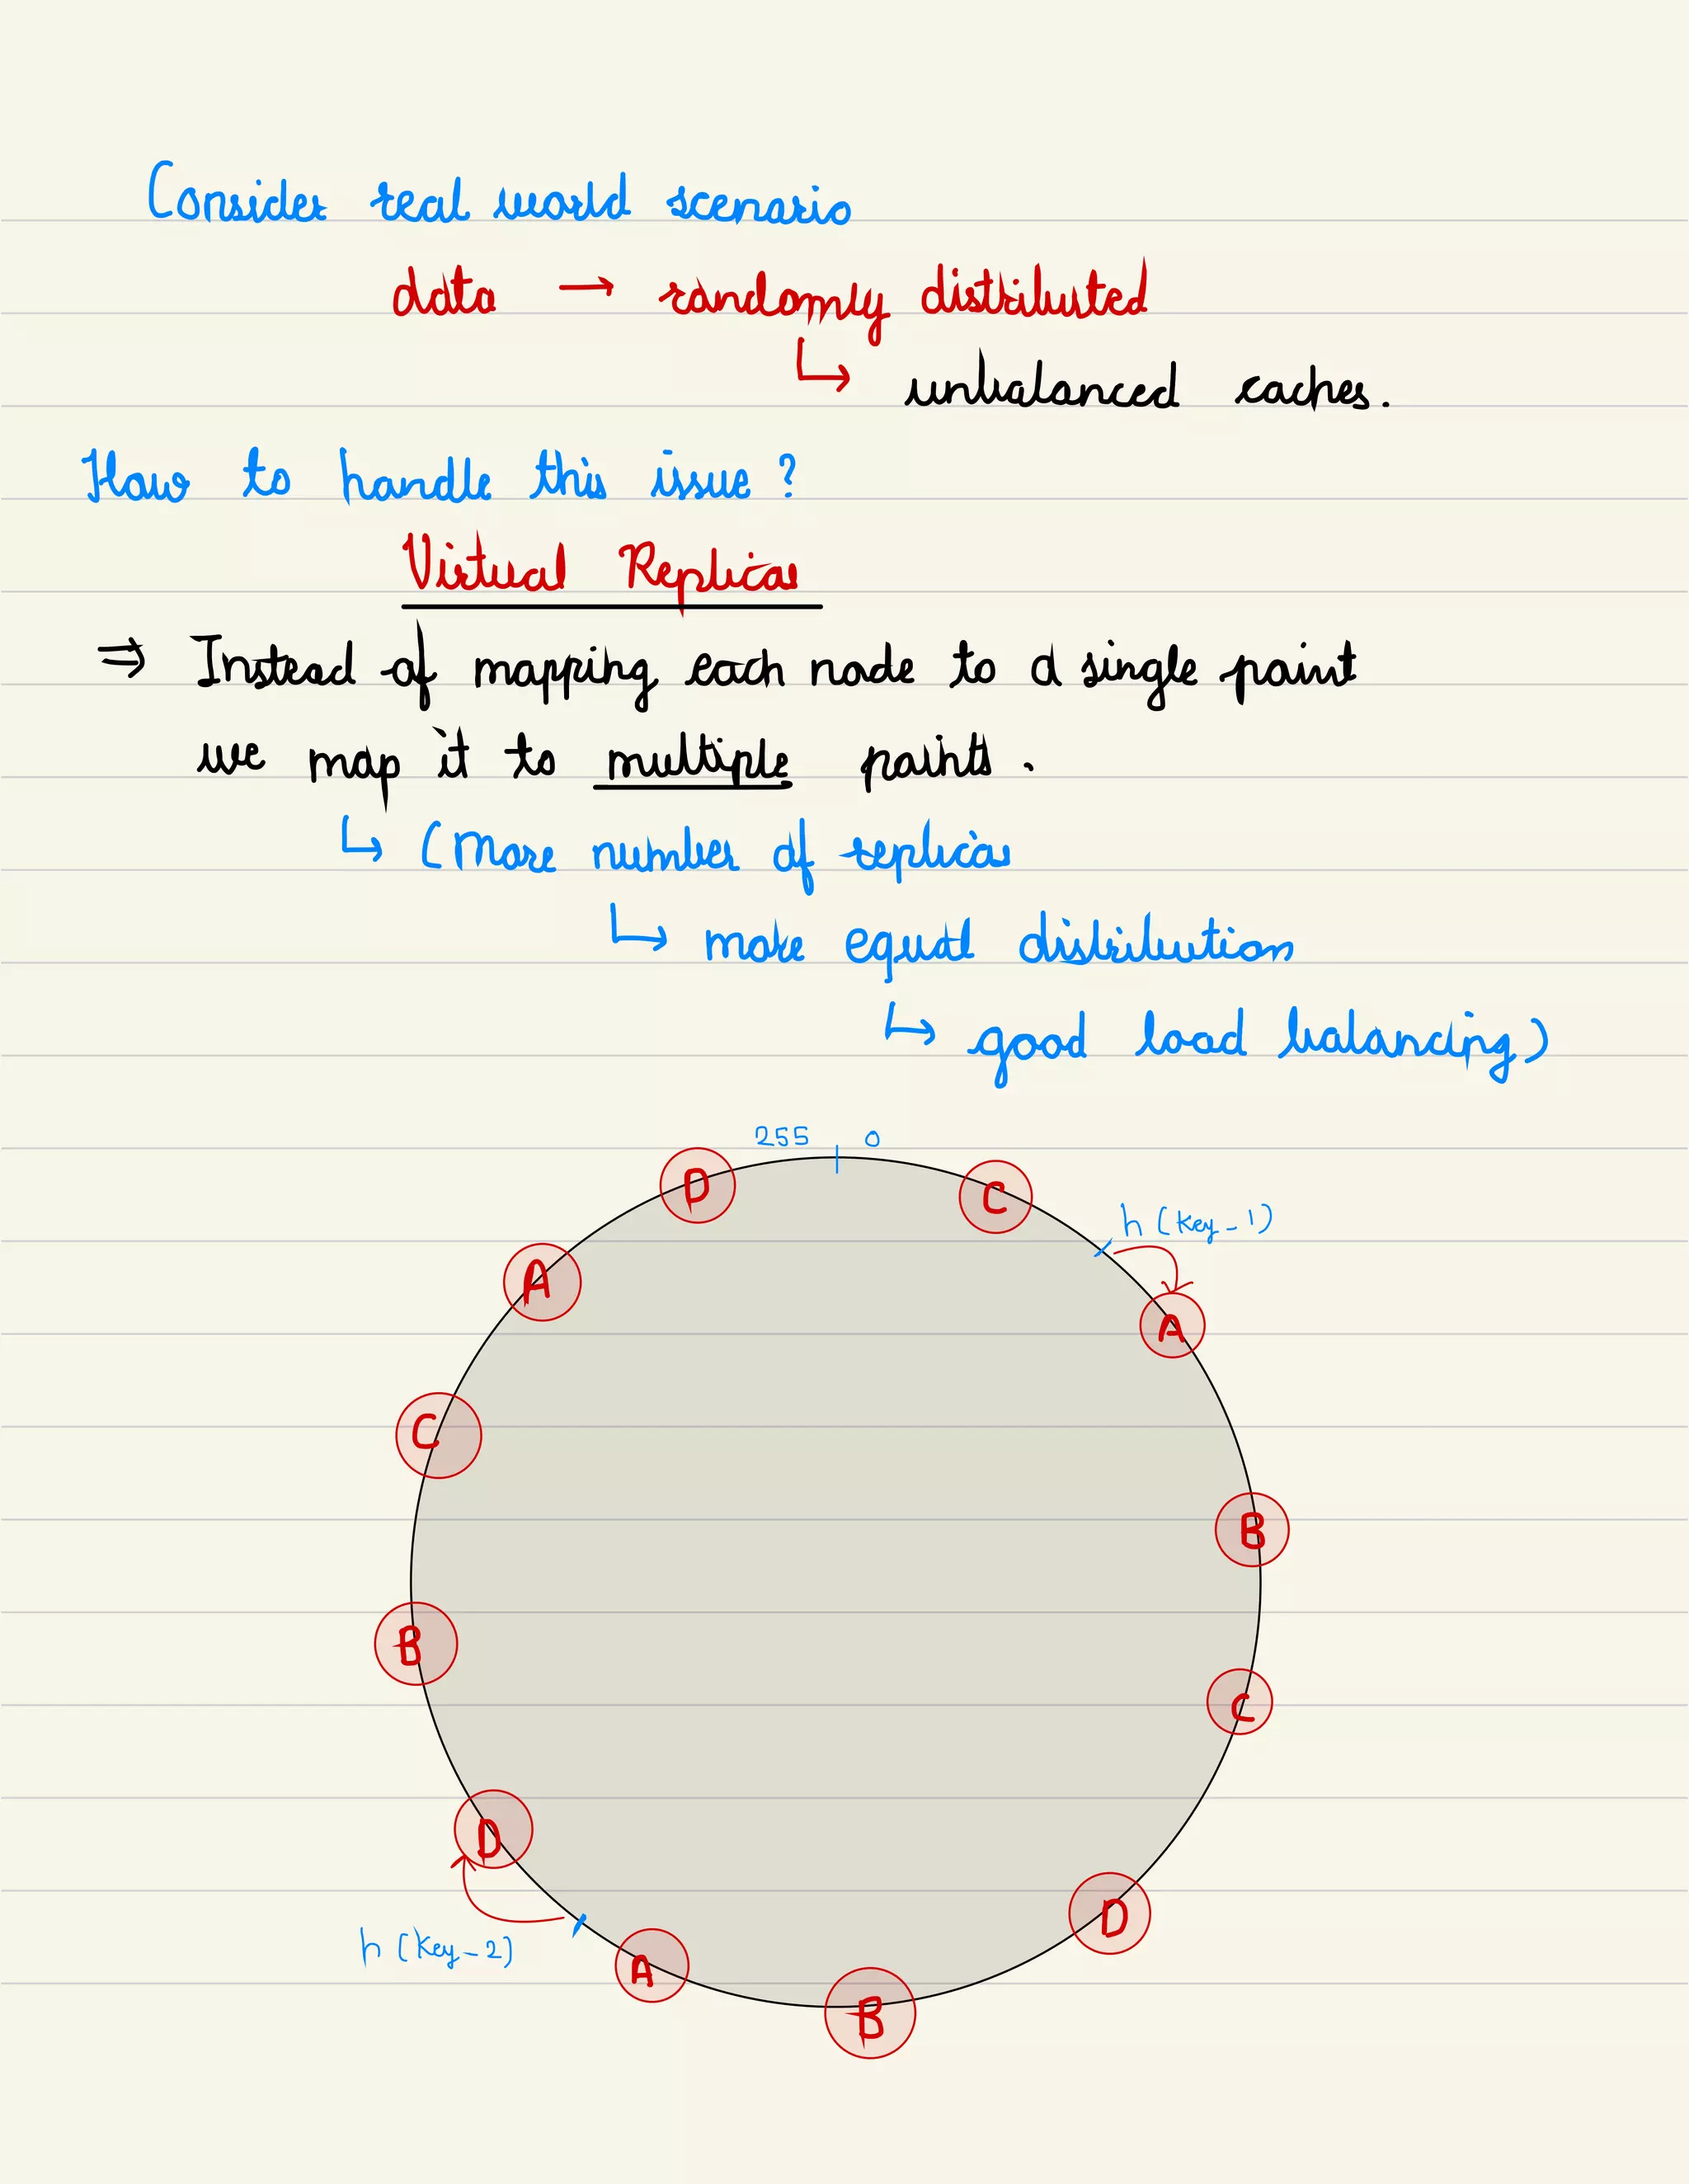 Consider real world scenario
data → randomly distributed
↳ unbalanced caches.
How to handle this issue?
Virtual Replicas
⇒ Instead of mapping each node to a single point
we map it to multiple points.
↳ (More number of replicas
↳ more equal distribution
↳ good load balancing)
255 | 0
D
C
h (Key-1)
A
A
C
B
B
C
D
D
h (Key-2)
A
B